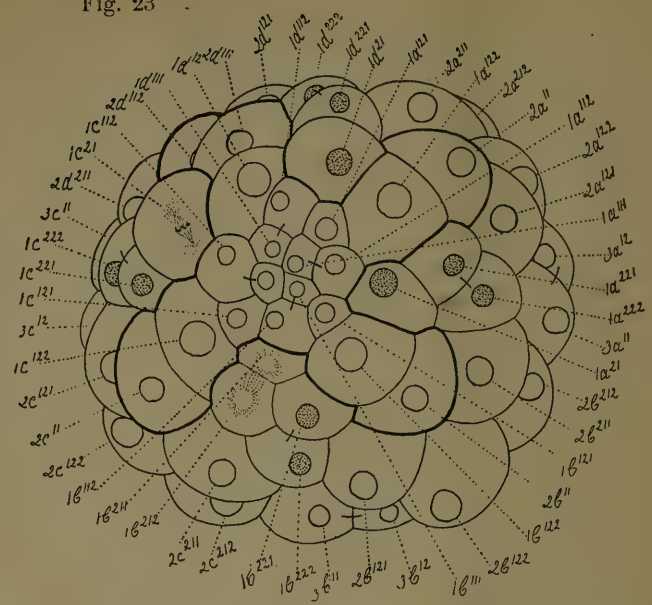 Fig. 23
2d¹²¹
1d¹¹²
1d²²²
1d²²¹
1d²¹
1a¹²¹
2a²¹¹
1a¹²²
2a²¹²
2a¹¹
1a¹¹²
2a¹²²
2a¹²¹
1a¹¹¹
3a¹²
1a²²¹
1a²²²
3a¹¹
1a²¹
2b²¹²
2b²¹¹
1b¹²¹
2b¹¹
1b¹²²
2b¹²²
1b¹¹¹
3b¹²
2b¹²¹
3b¹¹
1b²²²
1b²²¹
2c²¹²
2c²¹¹
1b²¹²
1b²¹¹
1b¹¹²
2c¹²²
2c¹¹
2c¹²¹
1c¹²²
3c¹²
1c¹²¹
1c²²¹
1c²²²
3c¹¹
2d²¹¹
1c²¹
1c¹¹²
2d¹¹²
1d¹¹¹
1d¹²
2d¹¹